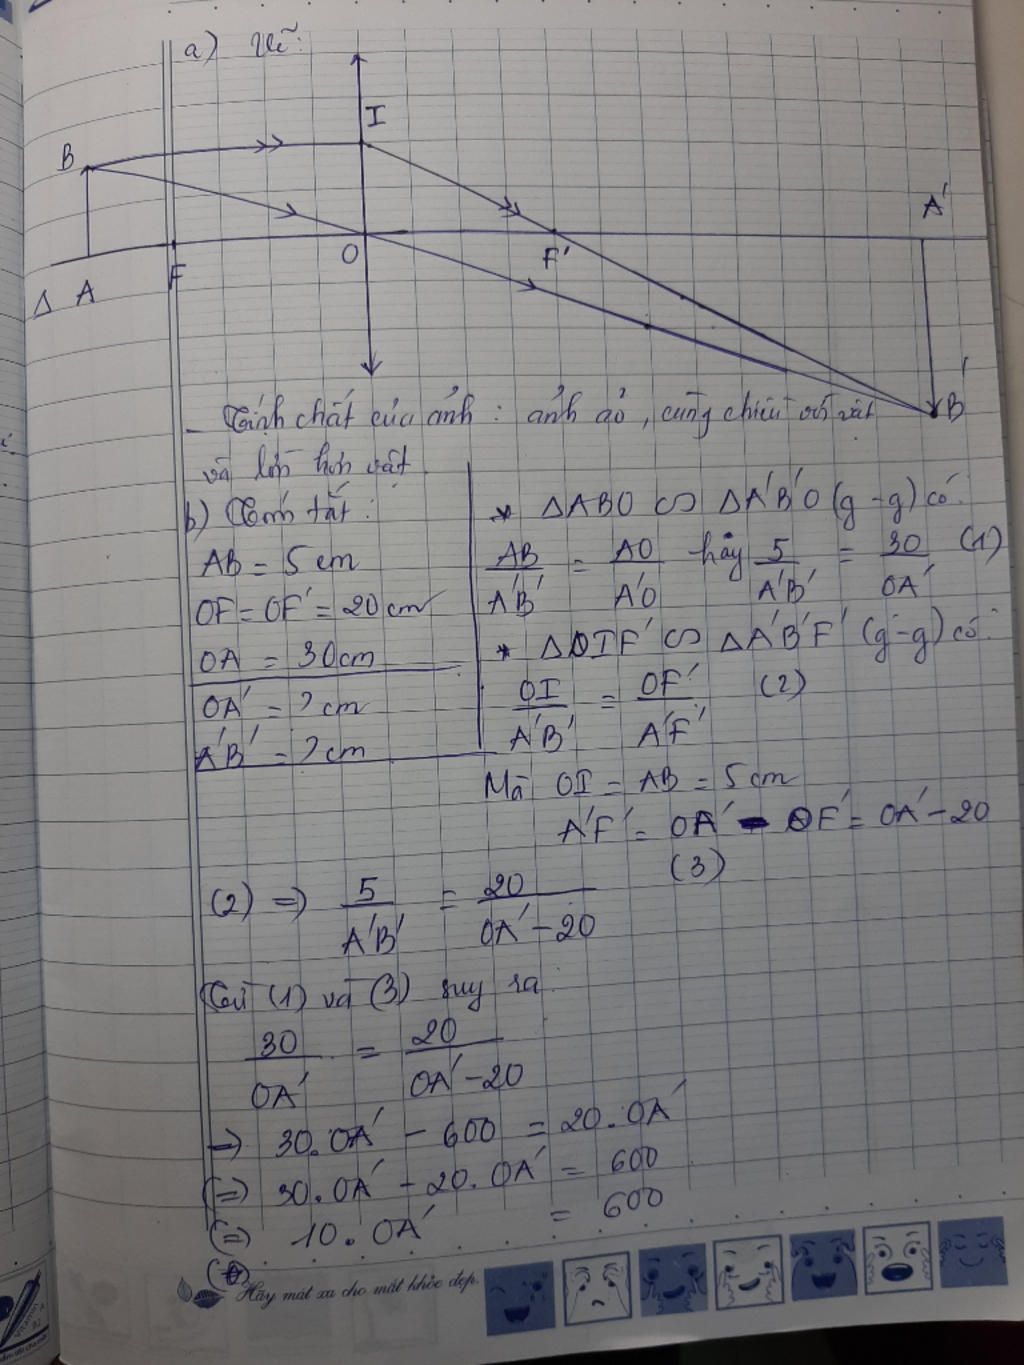 a) Vẽ:
I
B
A'
O
F'
Δ A
F
B'
- Tính chất của ảnh : ảnh ảo , cùng chiều với vật
và lớn hơn vật
b) Tóm tắt :
AB = 5 cm
OF = OF' = 20 cm
OA = 30 cm
OA' = ? cm
A'B' = ? cm
* ΔABO ∽ ΔA'B'O (g-g) có:
AB/A'B' = AO/A'O hay 5/A'B' = 30/OA' (1)
* ΔOIF' ∽ ΔA'B'F' (g-g) có:
OI/A'B' = OF'/A'F' (2)
Mà OI = AB = 5 cm
A'F' = OA' - OF' = OA' - 20
(2) => 5/A'B' = 20/OA' - 20 (3)
Từ (1) và (3) suy ra
30/OA' = 20/OA' - 20
-> 30. OA' - 600 = 20. OA'
(=) 30. OA' - 20. OA' = 600
(=) 10. OA' = 600
Hãy mát xa cho mắt khỏe đẹp.